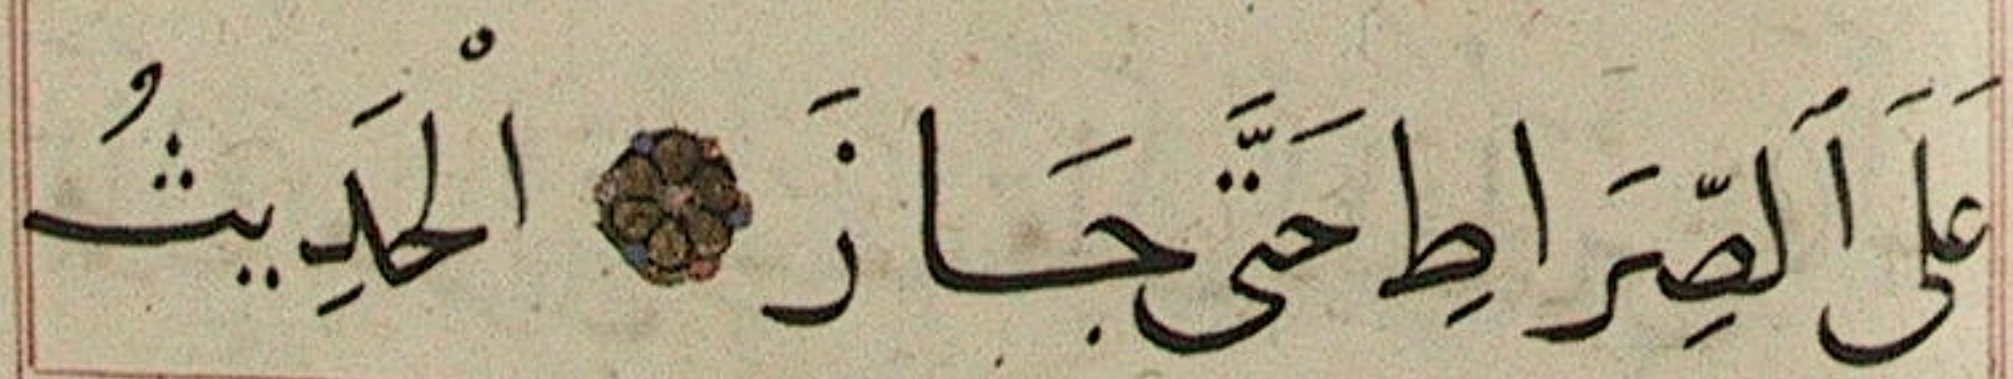 عَلَى اَلصِّرَاطِ حَتَّى جَازَ الْحَدِيثُ